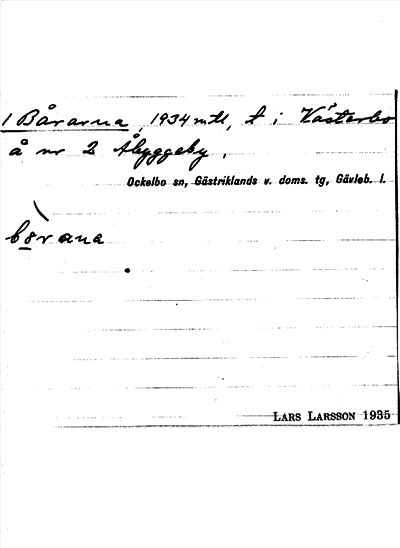 1 Bårarna, 1934 mtl, t i Västerbo
å nr 2 Åbyggeby.
Ockelbo sn, Gästriklands v. doms. tg, Gävleb. l.
bɷ̀rana
LARS LARSSON 1935